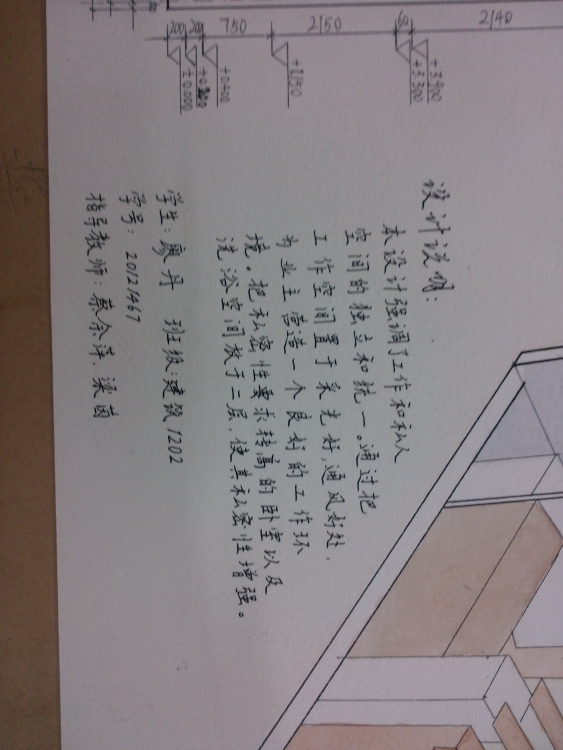 200
200
750
2150
60
2140
±0.000
+0.400
+2.150
+3.300
+3.900
设计说明：
本设计强调了工作和私人
空间的独立和统一。通过把
工作空间置于采光好,通风好处,
为业主营造一个良好的工作环
境。把私密性要求转高的卧室以及
洗浴空间放于二层,使其私密性增强。
学生：廖丹 班级：建筑1202
学号：20121467
指导教师：蔡余萍.梁茵